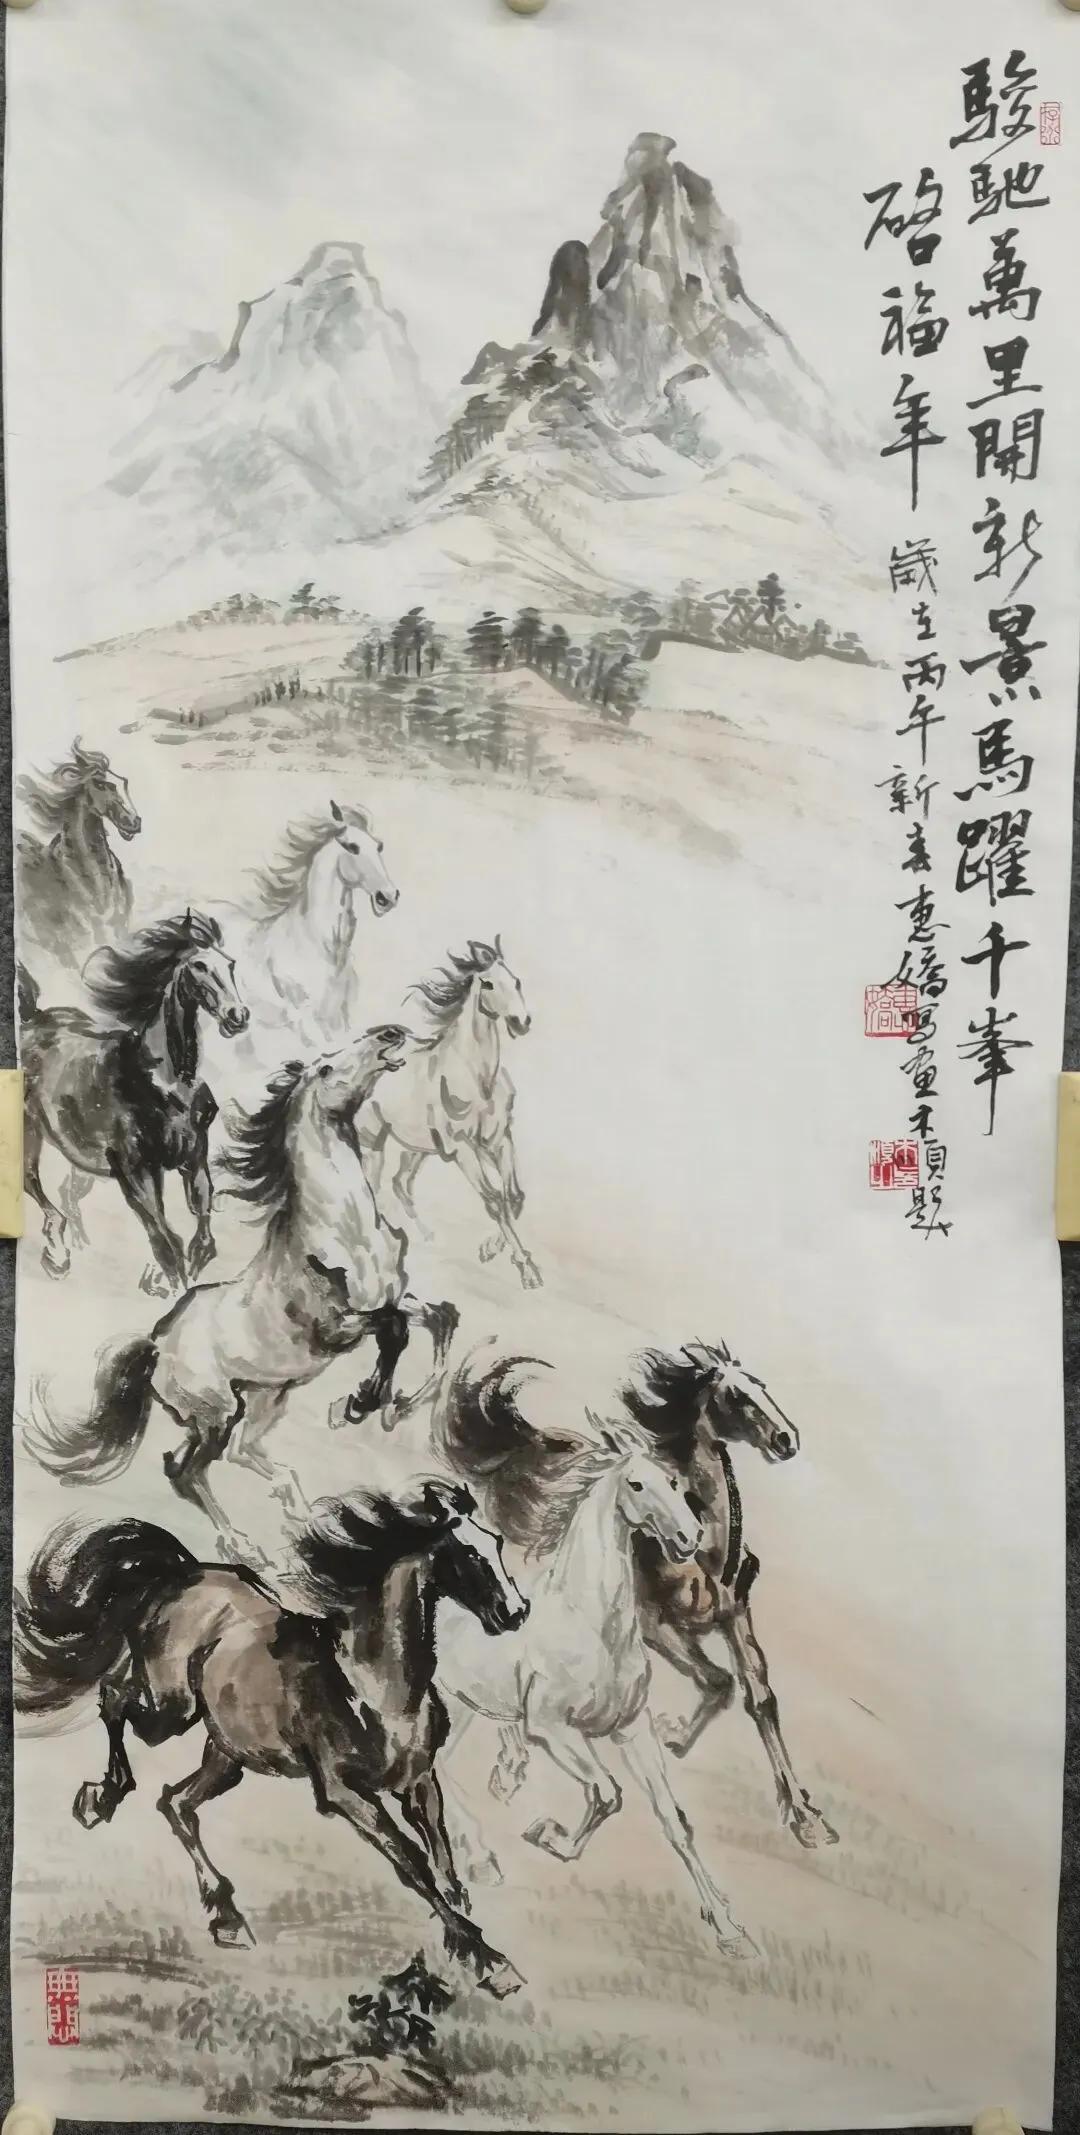 駿馳萬里開新景馬躍千峯
啓福年
歲在丙午新春惠嬌寫畫木頁題